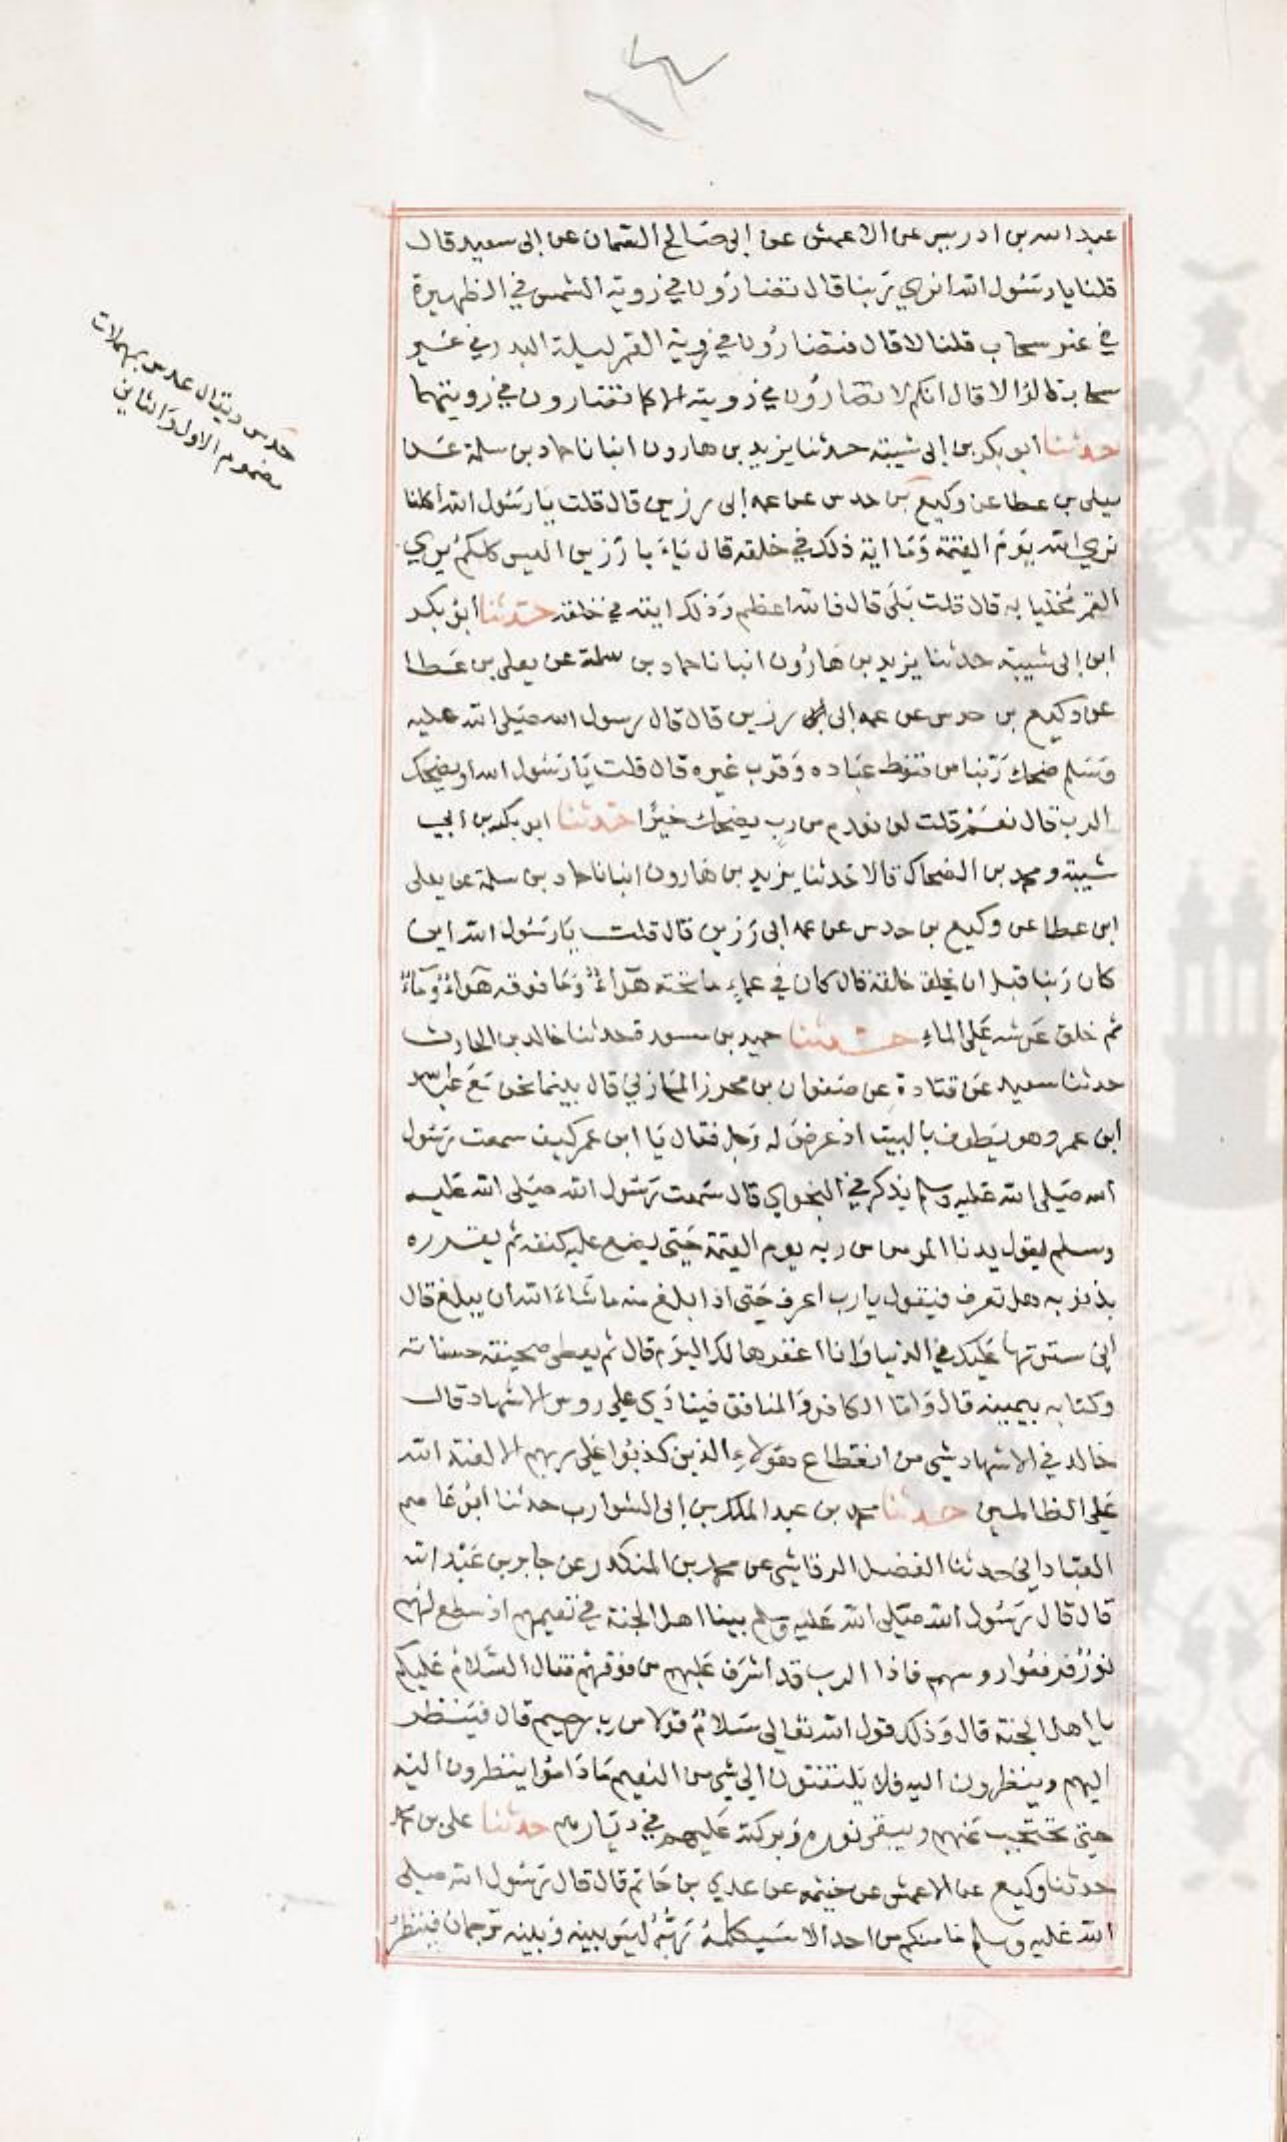 عبد الله بن ادريس عن الاعمش عن ابى صالح السمان عن ابى سعيد قال
قلنا يا رسول الله انرى ربنا قال تضارون في روية الشمس في الظهيرة
في غير سحاب قلنا لا قال فتضارون في روية القمر ليلة البدر في غير
سحاب قالوا لا قال انكم لا تضارون في رويته الا كما تضارون في رويتهما
حدثنا ابو بكر بن ابى شيبة حدثنا يزيد بن هارون انبانا حماد بن سلمة عن
يعلى بن عطا عن وكيع بن حدس عن عمه ابى رزين قال قلت يا رسول الله اكلنا
نرى الله يوم القيمة وما اية ذلك في خلقه قال يا با رزين اليس كلكم يرى
القمر مخليا به قال قلت بلى قال فالله اعظم وذلك ايته في خلقه حدثنا ابو بكر
ابن ابى شيبة حدثنا يزيد بن هارون انبانا حماد بن سلمة عن يعلى بن عطا
عن وكيع بن حدس عن عمه ابى رزين قال قال رسول الله صلى الله عليه
وسلم ضحك ربنا من قنوط عباده وقرب غيره قال قلت يا رسول الله او يضحك
الرب قال نعم قلت لن نعدم من رب يضحك خيرا حدثنا ابو بكر بن ابي
شيبة ومحمد بن الضحاك قالا حدثنا يزيد بن هارون انبانا حماد بن سلمة عن يعلى
ابن عطا عن وكيع بن حدس عن عمه ابى رزين قال قلت يا رسول الله اين
كان ربنا قبل ان يخلق خلقه قال كان في عماء ما تحته هواء وما فوقه هواء وماء
ثم خلق عرشه على الماء حدثنا حميد بن مسعدة حدثنا خالد بن الحارث
حدثنا سعيد عن قتادة عن صفوان بن محرز المازني قال بينما نحن مع عبد الله
ابن عمر وهو يطوف بالبيت اذ عرض له رجل فقال يا ابن عمر كيف سمعت رسول
الله صلى الله عليه وسلم يذكر في النجوى قال سمعت رسول الله صلى الله عليه
وسلم يقول يدنا المومن من ربه يوم القيمة حتى يضع عليه كنفه ثم يقرره
بذنوبه هل تعرف فيقول يارب اعرف حتى اذا بلغ منه ما شاء الله ان يبلغ قال
اني سترتها عليك في الدنيا وانا اغفرها لك اليوم قال ثم يعطى صحيفة حسناته
وكتابه بيمينه قال واما الكافر والمنافق فينادي على روس الاشهاد قال
خالد في الاشهاد شي من انقطاع هولاء الذين كذبوا على ربهم الا لعنة الله
على الظالمين حدثنا محمد بن عبد الملك بن ابى الشوارب حدثنا ابو عاصم
العباداني حدثنا الفضل الرقاشي عن محمد بن المنكدر عن جابر بن عبد الله
قال قال رسول الله صلى الله عليه وسلم بينا اهل الجنة في نعيمهم اذ سطع لهم
نور فرفعوا روسهم فاذا الرب قد اشرف عليهم من فوقهم فقال السلام عليكم
يا اهل الجنة قال وذلك قول الله تعالى سلام قولا من رب رحيم قال فينظر
اليهم وينظرون اليه فلا يلتفتون الى شي من النعيم ماداموا ينظرون اليه
حتى يحتجب عنهم ويبقى نوره وبركته عليهم في ديارهم حدثنا على بن محمد
حدثنا وكيع عن الاعمش عن خيثمه عن عدي بن حاتم قال قال رسول الله صلى
الله عليه وسلم ما منكم من احد الا سيكلمه ربه ليس بينه وبينه ترجمان فينظر
حدس ويقال عدس بمهملات
مضموم الاول والثاني